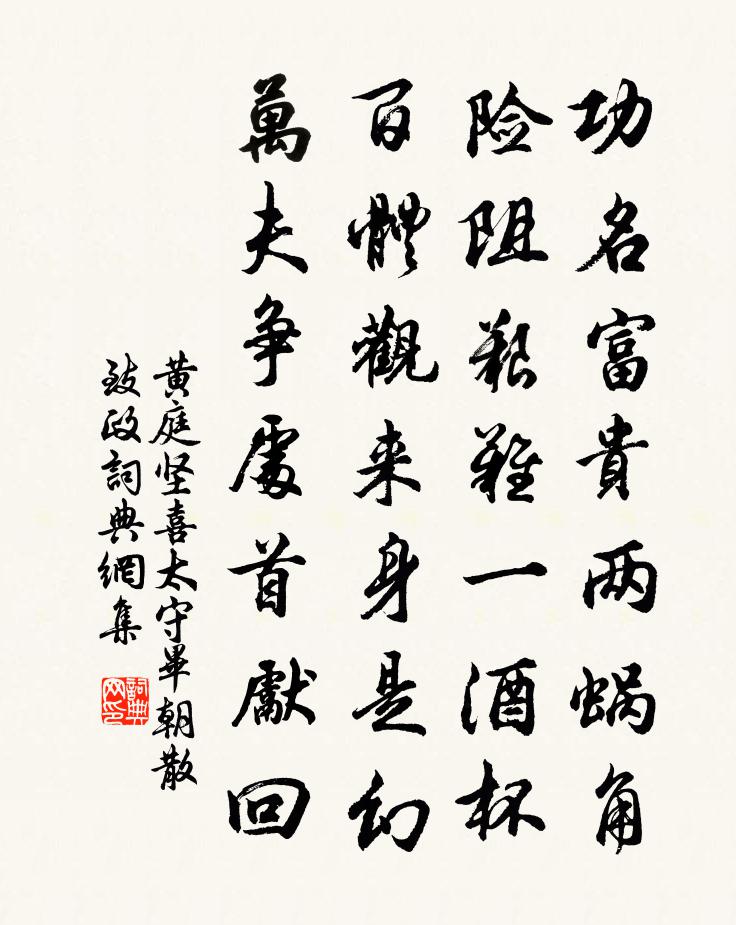 功名富貴两蜗角
险阻艱難一酒杯
百體觀来身是幻
萬夫争處首獻回
黄庭坚喜太守畢朝散
致政詞典網集
詞典网印